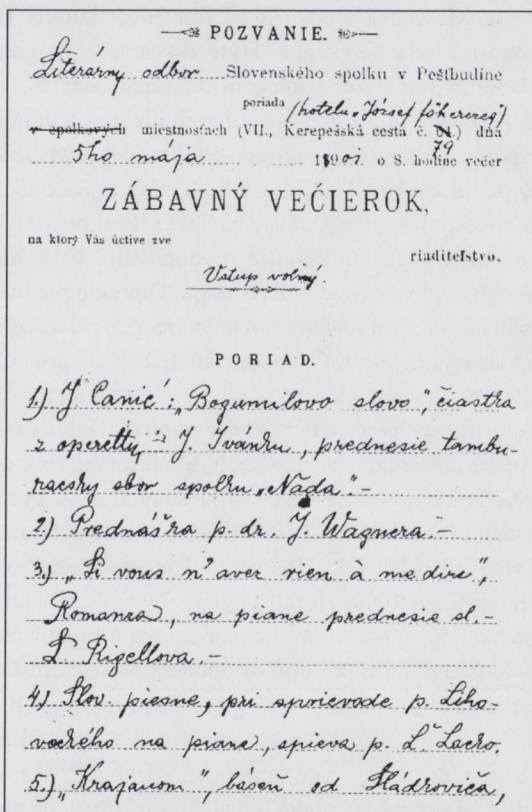 POZVANIE.
Literárny odbor Slovenského spolku v Peštbudíne
poriada /hotelu „József főherczeg/
v spolkových miestnosťach (VII., Kerepešská cesta č. 79) dňa
5ho mája 1901 o 8. hodine večer
ZÁBAVNÝ VEČIEROK,
na ktorý Vás úctive zve
riaditeľstvo.
Vstup voľný
PORIAD.
1.) J. Canić: „Bogumilovo slovo“, čiastka
z operetty J. Ivánku, prednesie tambu-
racský sbor spolku „Nada“ –
2.) Prednáška p. dr. J. Wagnera. –
3.) „Si vous n' aver rien à me dire“,
Romanza, na piane prednesie sl. –
L. Rigellova. –
4.) Slov. piesne, pri sprievode p. Liho-
vackého na piane, spieva p. Ľ Lacko.
5.) „Krajanom“, báseň od Sládkoviča,